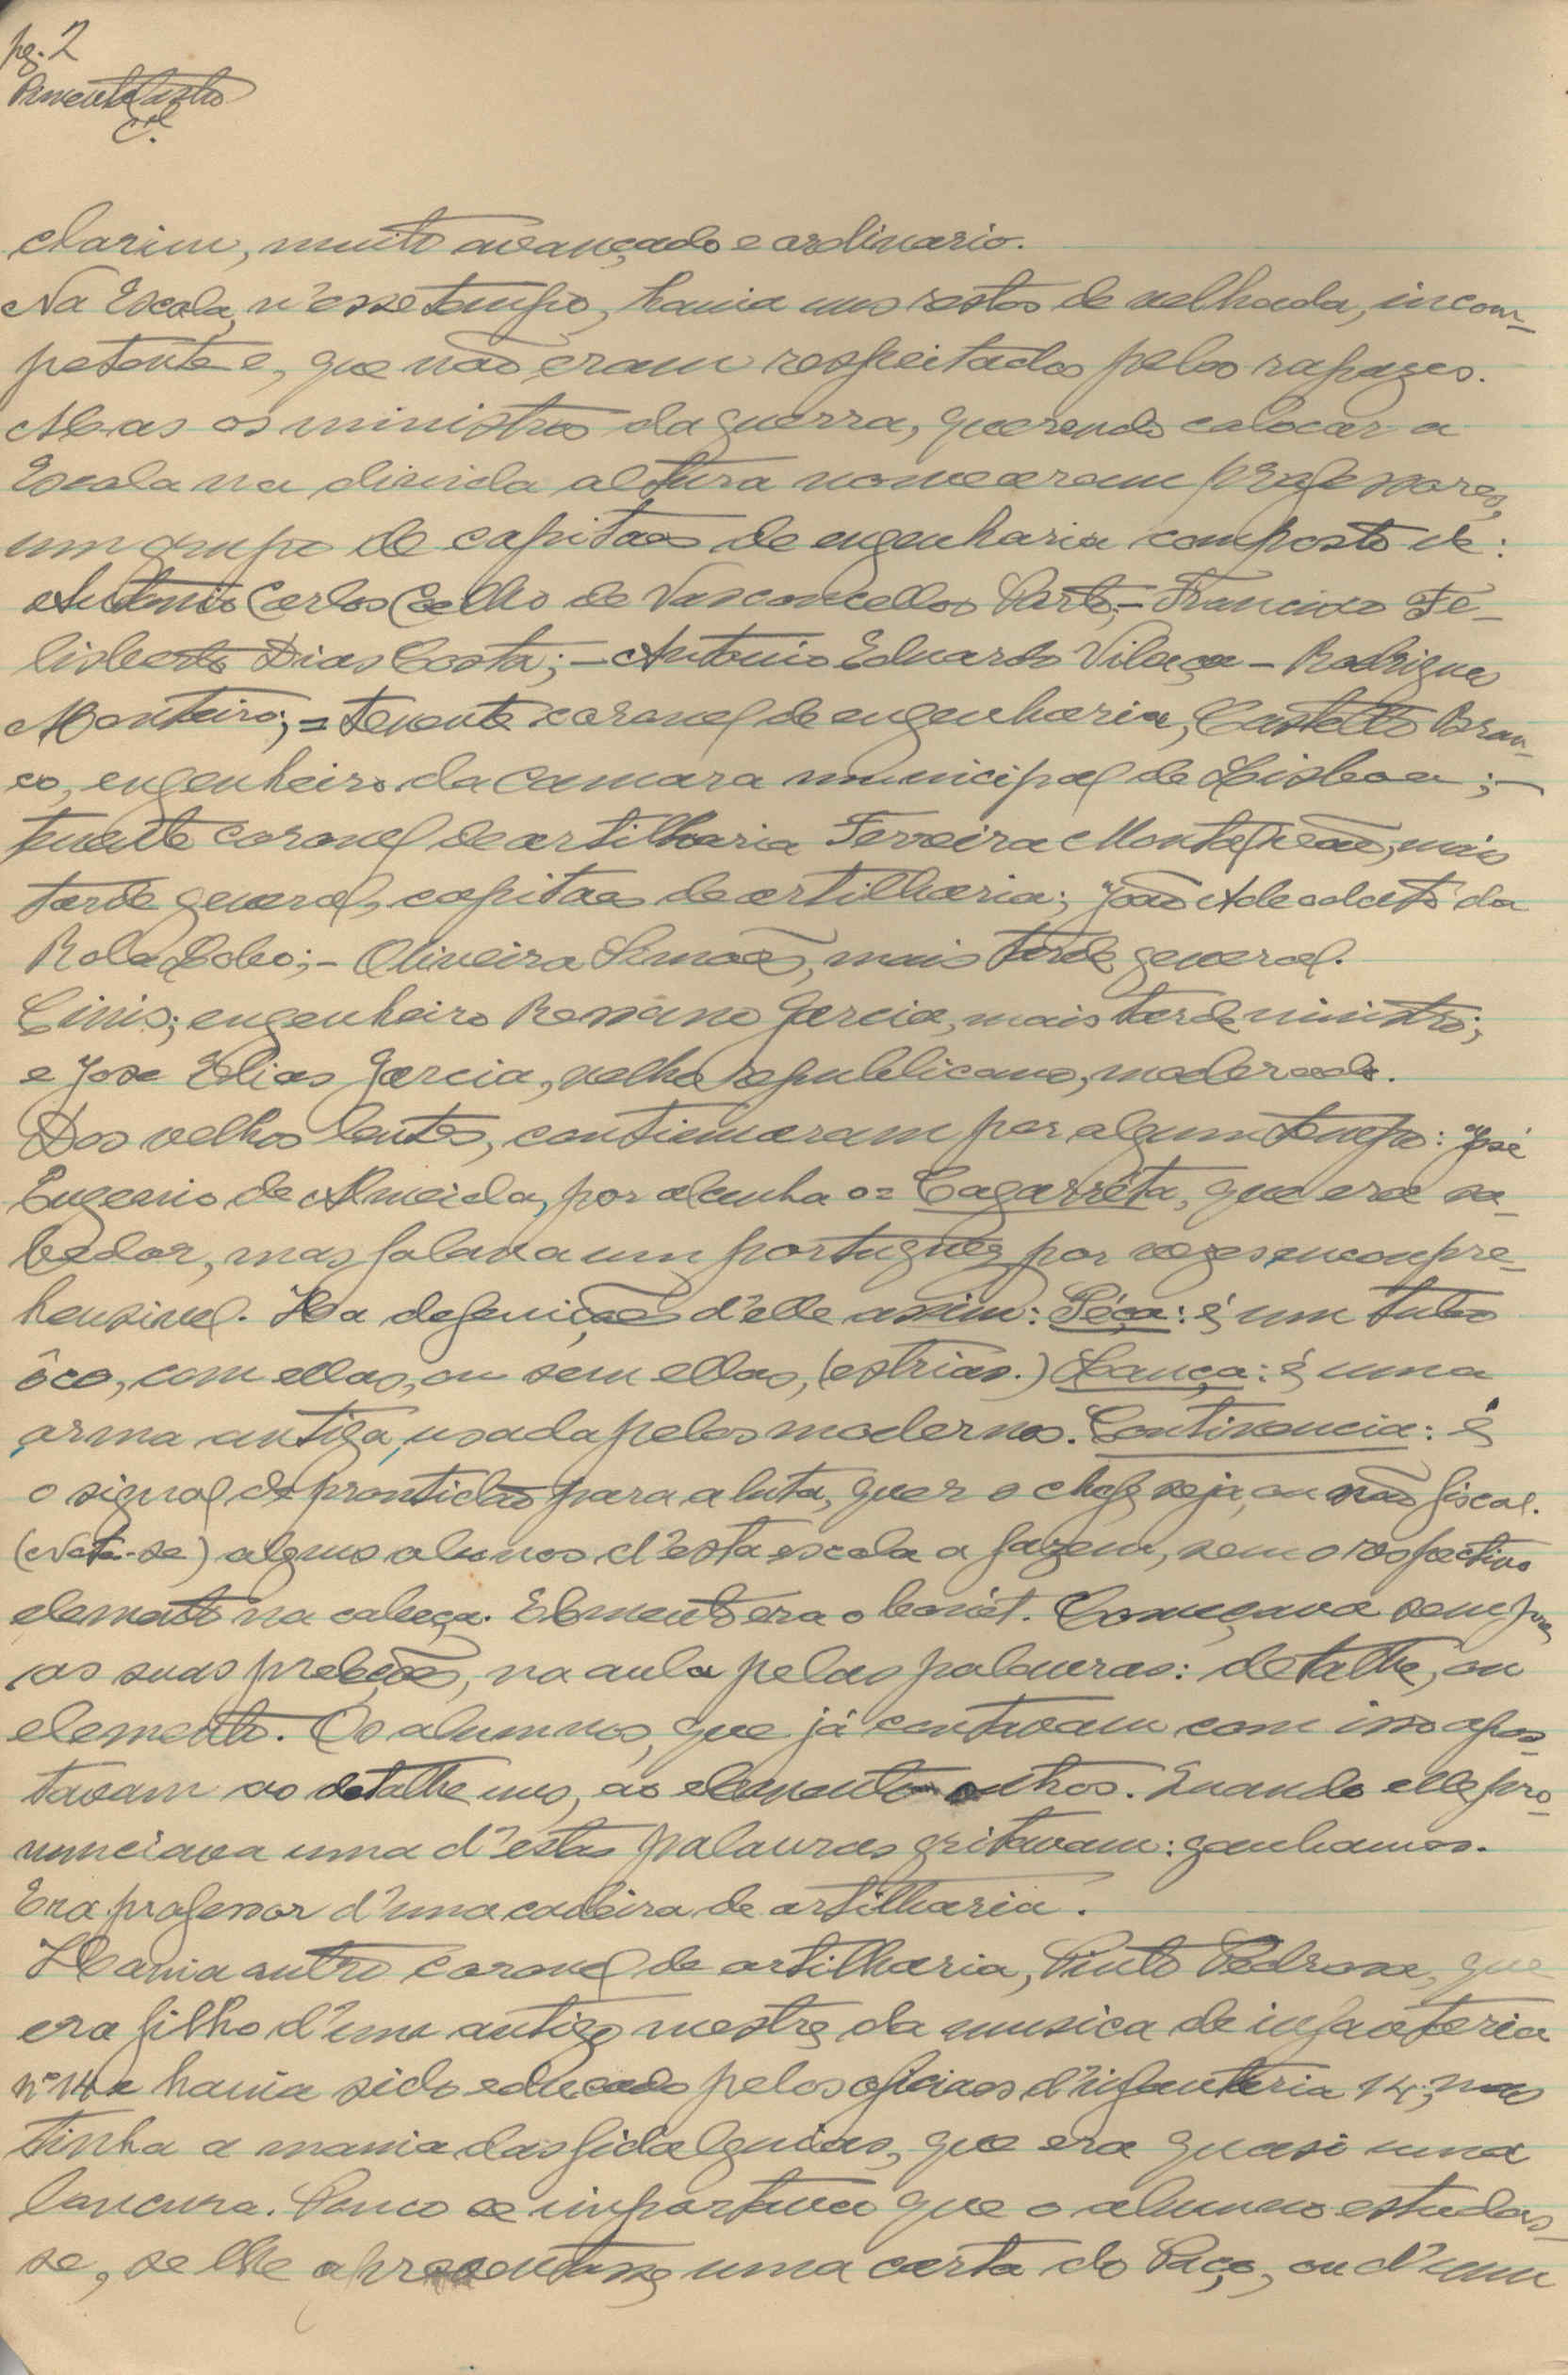 pg. 2
Pimenta Castro
Cel.
clarim, muito avançado e ordinario.
Na Escola, n'esse tempo, havia uns restos de velhada, incom-
petente e, que não eram respeitados pelos rapazes.
Mas os ministros da guerra, querendo colocar a
Escola na divida altura nomearam professores,
um grupo de capitães de engenharia composto de:
Antonio Carlos Coelho de Vasconcellos Porto;- Francisco Fe-
lisberto Dias Costa;- Antonio Eduardo Vilaça - Rodrigues
Monteiro;= tenente coronel de engenharia, Castello Bran-
co, engenheiro da camara municipal de Lisboa;-
tenente coronel de artilharia Ferreira Monte, mais
tarde general, capitães de artilharia; João da
Lobo;- Oliveira Simões, mais tarde general.
Cinis; engenheiro Ressano Garcia, mais tarde ministro;
e Jose Elias Garcia, velho republicano, moderado.
Dos velhos lentes, continuaram por algum tempo: José
Eugenio de Almeida, por alcunha o= Cagarrêta, que era sa-
bedor, mas falava um portuguez por vezes, encompre-
hensivel. Ha defenições d'elle assim: Péça: é um tubo
ôco, com ellas, ou sem ellas, (estrias.) Lança: é uma
arma antiga, usada pelos modernos. Continencia: é
o signal de prontidão para a luta, quer o chefe seja, ou não fiscal.
(Nota-se) alguns alunos d'esta escola a fazem, sem o respectivo
elemento na cabeça. Elemento era o bonét. Começava sempre
as suas preleções, na aula pelas palavras: detalhe, ou
elemento. Os alumnos, que já contavam com isso apos-
tavam ao detalhe uns, ao elemento outros. Quando elle pro-
nunciava uma d'estas palavras gritavam: ganhamos.
Era professor d'uma cadeira de artilharia.
Havia outro coronel de artilharia, Pinto Pedrosa, que
era filho d'um antigo mestre da musica de infanteria
nº 14 e havia sido educado pelos oficiaes d'infanteria 14; mas
tinha a mania das fidalguias, que era quasi uma
loucura. Pouco se importava que o alumno estudas-
se, se lhe apresentasse uma carta do Paço, ou d'um